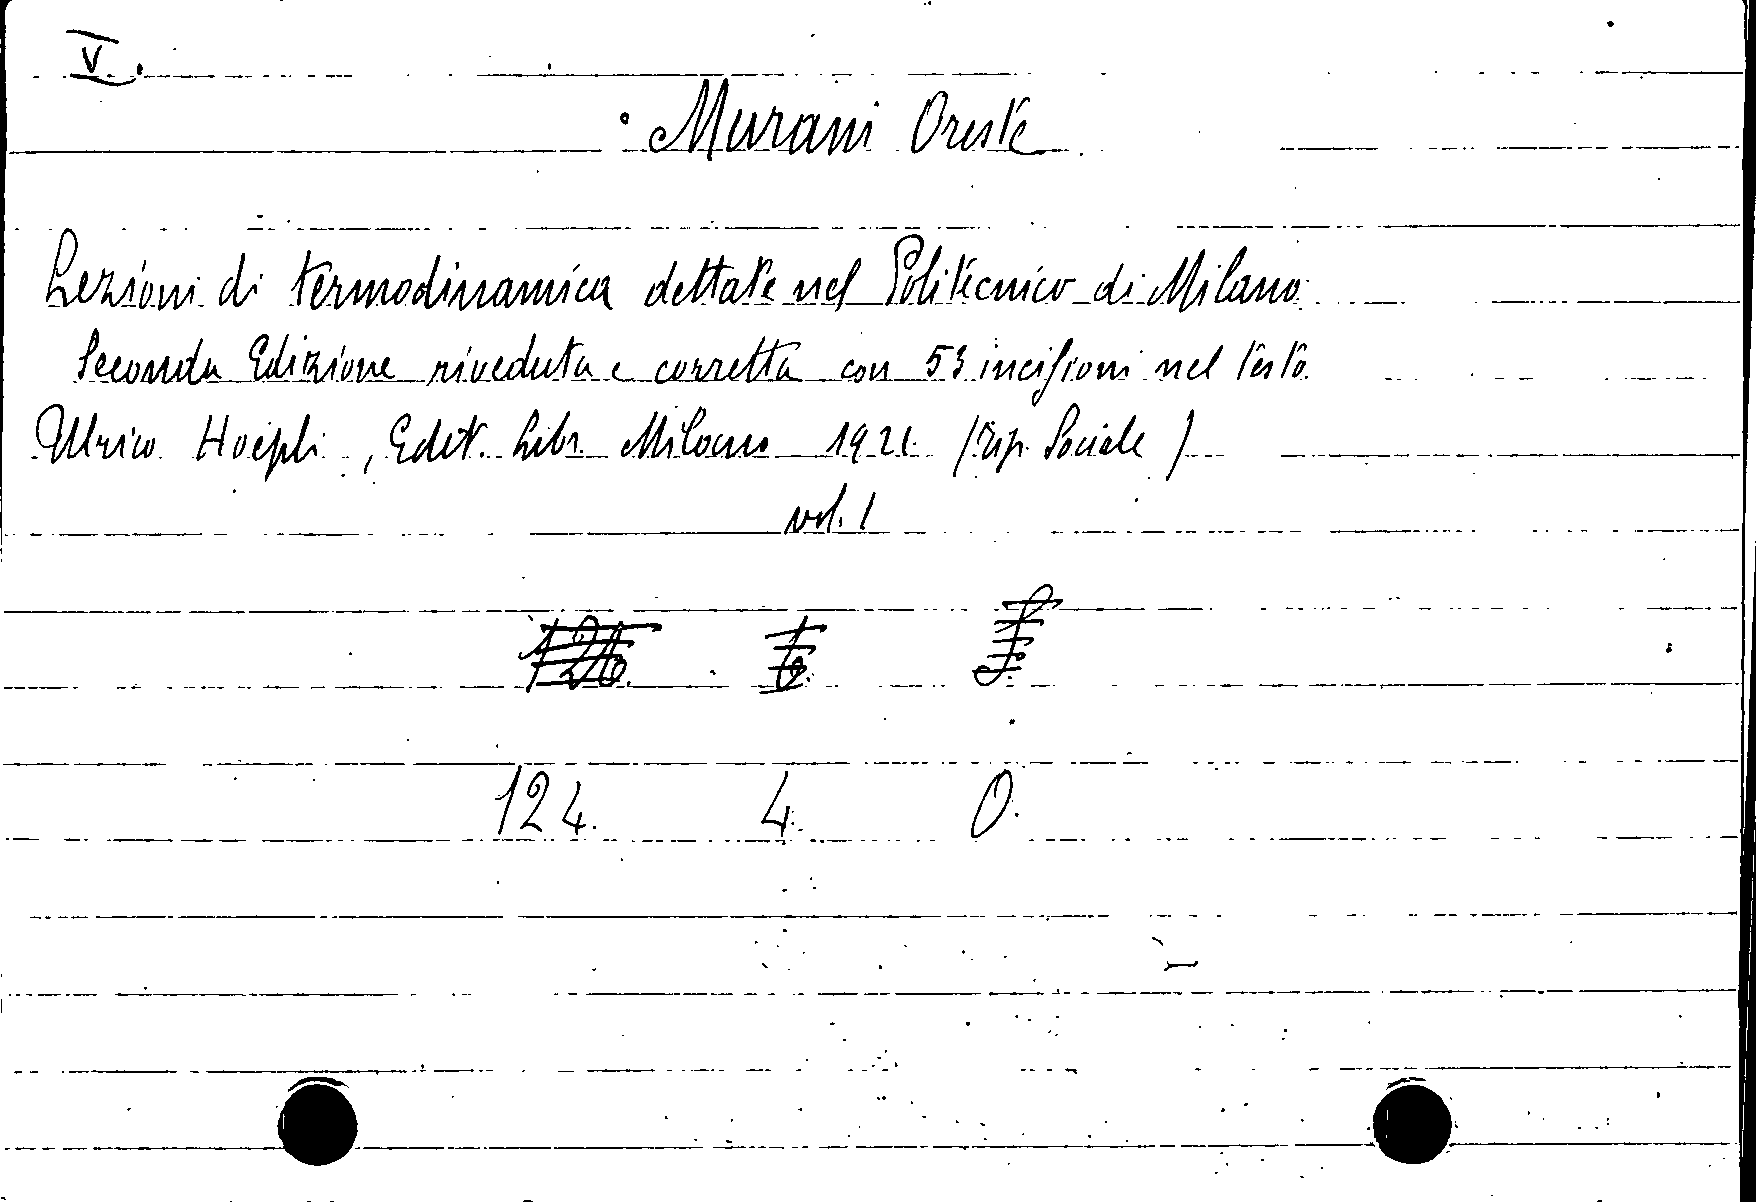 V.
Murani Oreste
Lezioni di termodinamica dettate nel Politecnico di Milano
Seconda Edizione riveduta e corretta con 53 incisioni nel testo.
Ulrico Hoepli, Edit. Libr. Milano 1921 (Tip. Sociale)
vol. 1
124. 4. O.